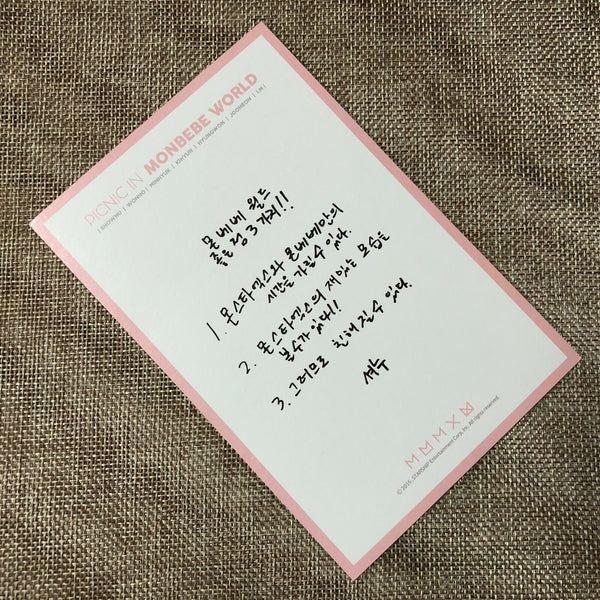 PICNIC IN MONBEBE WORLD
| SHOWNU | WONHO | MINHYUK | KIHYUN | HYUNGWON | JOOHEON | I.M |
몬베베 월드
좋은점 3가지!!
1. 몬스타엑스와 몬베베만의
시간을 가질수 있다.
2. 몬스타엑스의 재밌는 모습을
볼수가 있다!!
3. 그러므로 친해질수 있다.
셔누
© 2016. STARSHIP Entertainment Corp, Inc. All rights reserved.